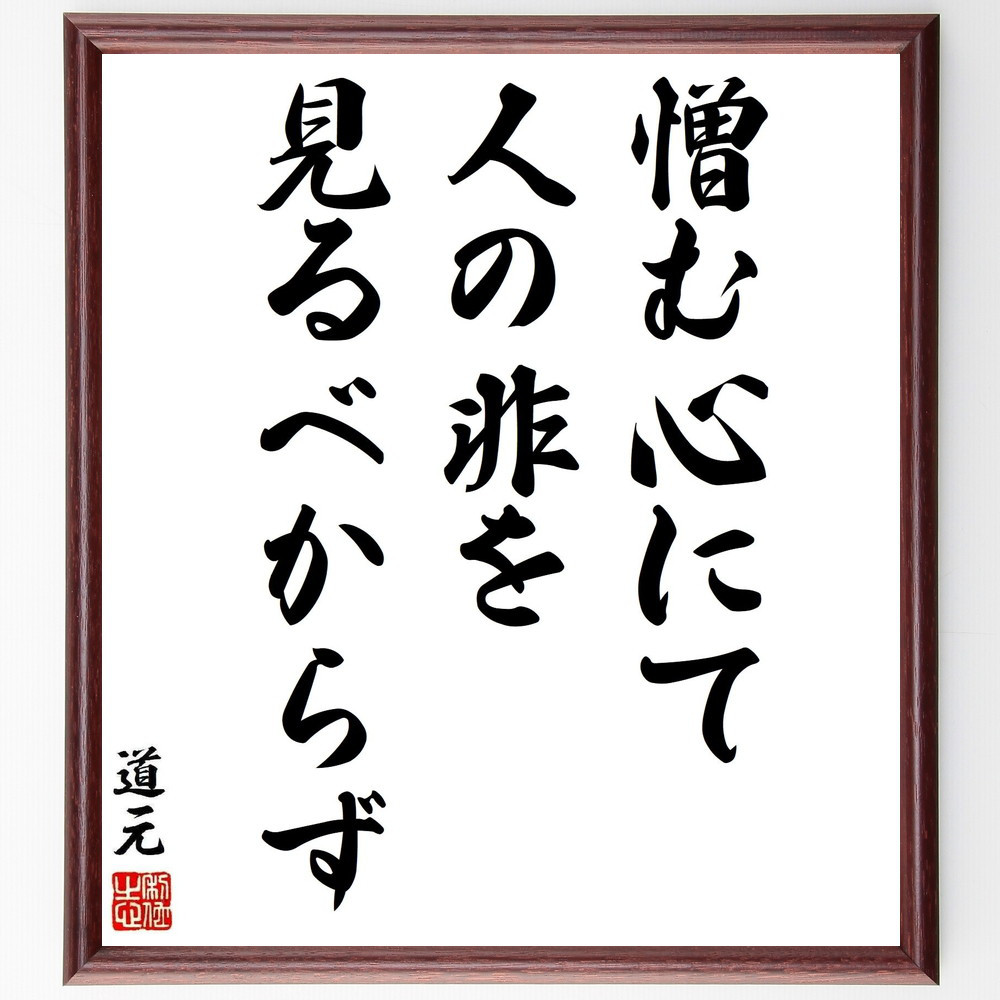 憎む心にて
人の非を
見るべからず
道元